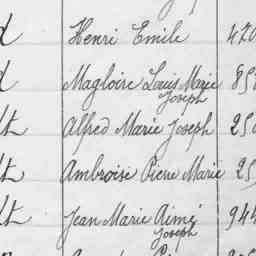 d Henri Emile 470
d Magloire Louis Marie 85
Joseph
lt Alfred Marie Joseph 250
lt Ambroise Pierre Marie 25
lt Jean Marie Aimé 944
Joseph